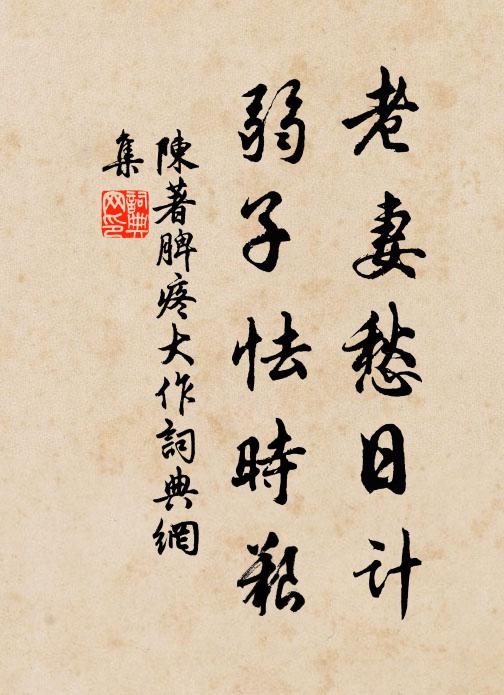 老妻愁日计
弱子怯時艱
陳著脾疼大作詞典網
集
詞典
网印